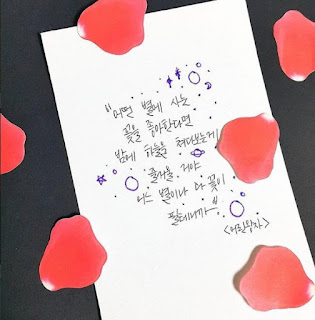 "어떤 별에 사는
꽃을 좋아한다면
밤에 하늘을 쳐다보는게
즐거울 거야
어느 별이나 다 꽃이
필테니까"
<어린왕자>